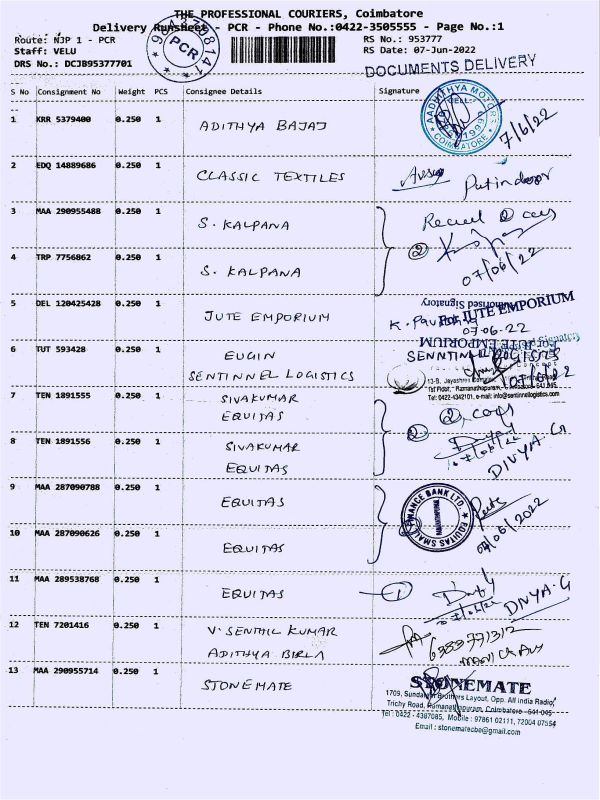 THE PROFESSIONAL COURIERS, Coimbatore
Delivery Runsheet - PCR - Phone No.:0422-3505555 - Page No.:1
Route: NJP 1 - PCR
RS No.: 953777
Staff: VELU
RS Date: 07-Jun-2022
DRS No.: DCJB95377701
PCR
DOCUMENTS DELIVERY
S No Consignment No Weight PCS Consignee Details Signature
1 KRR 5379400 0.250 1 ADITHYA BAJAJ
AADHITHYA MOTORS
CELL:-
COIMBATORE
7/6/22
2 EDQ 14889686 0.250 1 CLASSIC TEXTILES
3 MAA 290955488 0.250 1 S. KALPANA
② 
07/06/22
4 TRP 7756862 0.250 1 S. KALPANA
5 DEL 120425428 0.250 1 JUTE EMPORIUM
Authorised Signatory
For JUTE EMPORIUM
07-06-22
For JUTE EMPORIUM
6 TUT 593428 0.250 1 EUGIN
SENTINNEL LOGISTICS
Tel: 0422-4342101, e-mail: info@sentinnelogistics.com
7 TEN 1891555 0.250 1 SIVAKUMAR
EQUITAS
②
8 TEN 1891556 0.250 1 SIVAKUMAR
EQUITAS
DIVYA. G
9 MAA 287090788 0.250 1 EQUITAS
EQUITAS SMALL FINANCE BANK LTD.
07/06/2022
10 MAA 287090626 0.250 1 EQUITAS
11 MAA 289538768 0.250 1 EQUITAS
①
DIVYA.G
12 TEN 7201416 0.250 1 V. SENTHIL KUMAR
ADITHYA BIRLA
13 MAA 290955714 0.250 1 STONEMATE
STONEMATE
1709, Sundaram Brothers Layout, Opp. All India Radio,
Trichy Road, Ramanathapuram, Coimbatore - 641 045
Tel : 0422 - 4387085, Mobile : 97861 02111, 72004 07554
Email : stonematecbe@gmail.com